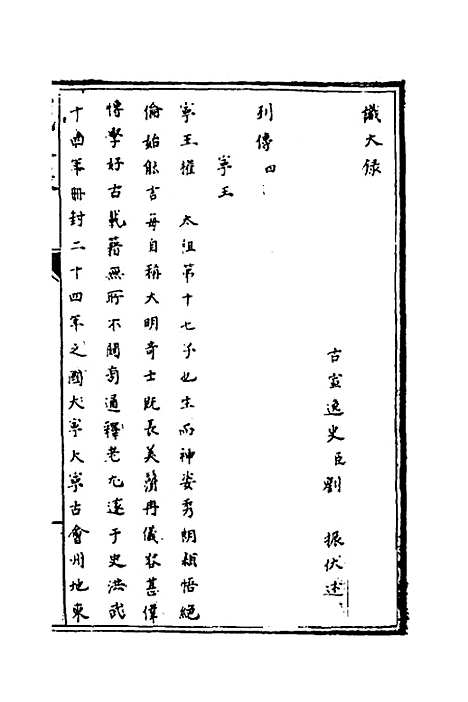 識大錄
古宣逸史臣劉 振伏述
列傳四
寧王
寧王權 太祖第十七子也生而神姿秀朗穎悟絕
倫始能言每自稱大明奇士既長美鬚髯儀容甚偉
博學好古載籍無所不闚旁通釋老尤邃于史洪武
十四年冊封二十四年之國大寧大寧古會州地東